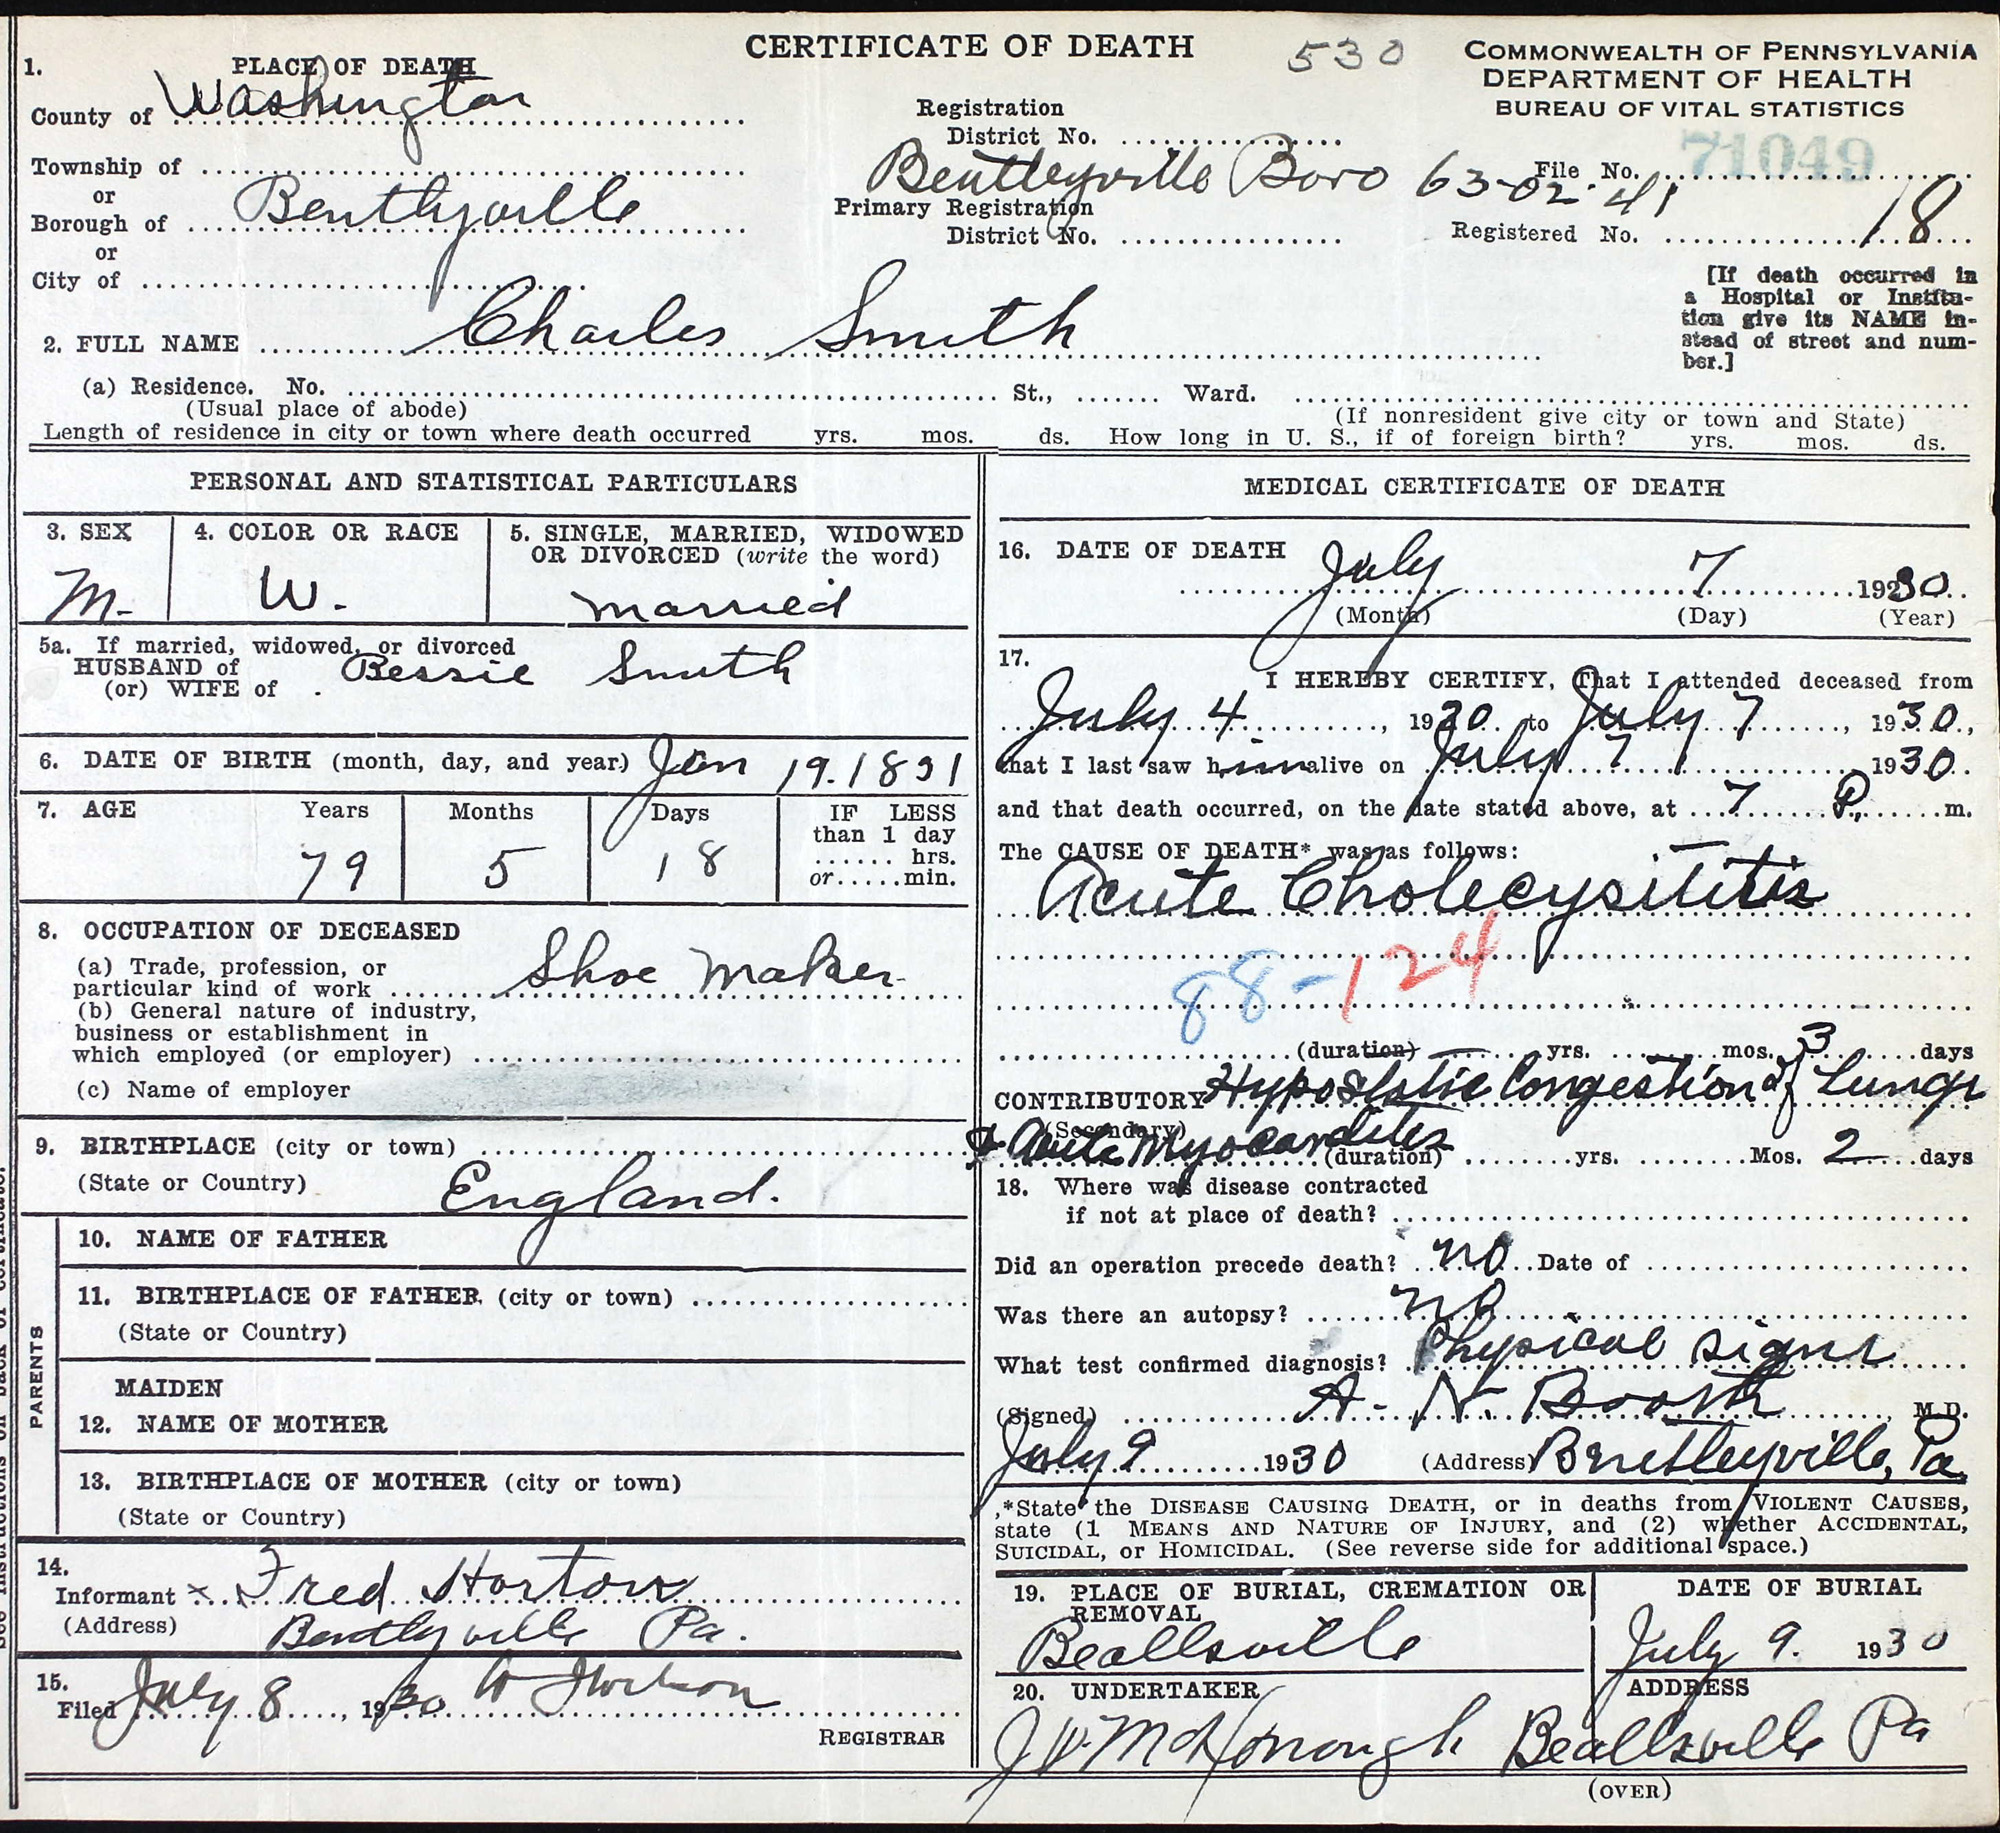 CERTIFICATE OF DEATH
530
COMMONWEALTH OF PENNSYLVANIA
DEPARTMENT OF HEALTH
BUREAU OF VITAL STATISTICS
1. PLACE OF DEATH
County of Washington
Township of
or
Borough of Bentlyville
or
City of
Registration
District No.
Bentleyville Boro 63-02-41
Primary Registration
District No.
File No. 71049
Registered No. 18
[If death occurred in
a Hospital or Institu-
tion give its NAME in-
stead of street and num-
ber.]
2. FULL NAME Charles Smith
(a) Residence. No. St., Ward.
(Usual place of abode) (If nonresident give city or town and State)
Length of residence in city or town where death occurred yrs. mos. ds. How long in U. S., if of foreign birth? yrs. mos. ds.
PERSONAL AND STATISTICAL PARTICULARS
3. SEX
M.
4. COLOR OR RACE
W.
5. SINGLE, MARRIED, WIDOWED
OR DIVORCED (write the word)
married
5a. If married, widowed, or divorced
HUSBAND of
(or) WIFE of
Bessie Smith
6. DATE OF BIRTH (month, day, and year) Jan 19. 1831
7. AGE Years Months Days IF LESS
than 1 day
hrs.
or min.
79 5 18
8. OCCUPATION OF DECEASED
(a) Trade, profession, or
particular kind of work Shoe Maker
(b) General nature of industry,
business or establishment in
which employed (or employer)
(c) Name of employer
9. BIRTHPLACE (city or town)
(State or Country) England.
PARENTS
10. NAME OF FATHER
11. BIRTHPLACE OF FATHER (city or town)
(State or Country)
MAIDEN
12. NAME OF MOTHER
13. BIRTHPLACE OF MOTHER (city or town)
(State or Country)
14.
Informant x Fred Horton
(Address) Bentlyville Pa.
15.
Filed July 8, 1930
REGISTRAR
MEDICAL CERTIFICATE OF DEATH
16. DATE OF DEATH
July 7 1930
(Month) (Day) (Year)
17.
I HEREBY CERTIFY, That I attended deceased from
July 4, 1930 to July 7, 1930,
that I last saw him alive on July 7 1930
and that death occurred, on the date stated above, at 7 P. m.
The CAUSE OF DEATH* was as follows:
Acute Cholecysititis
88-124
(duration) yrs. mos. 3 days
CONTRIBUTORY Hypostatic Congestion of Lungs
(Secondary)
& Acute Myocarditis
(duration) yrs. Mos. 2 days
18. Where was disease contracted
if not at place of death?
Did an operation precede death? no Date of
Was there an autopsy? no
What test confirmed diagnosis? Physical signs
(Signed) A. N. Booth, M.D.
July 9 1930 (Address) Bentleyville, Pa.
*State the DISEASE CAUSING DEATH, or in deaths from VIOLENT CAUSES,
state (1 MEANS AND NATURE OF INJURY, and (2) whether ACCIDENTAL,
SUICIDAL, or HOMICIDAL. (See reverse side for additional space.)
19. PLACE OF BURIAL, CREMATION OR
REMOVAL
Beallsville
DATE OF BURIAL
July 9. 1930
20. UNDERTAKER
J W. McDonough
ADDRESS
Beallsville Pa
(OVER)